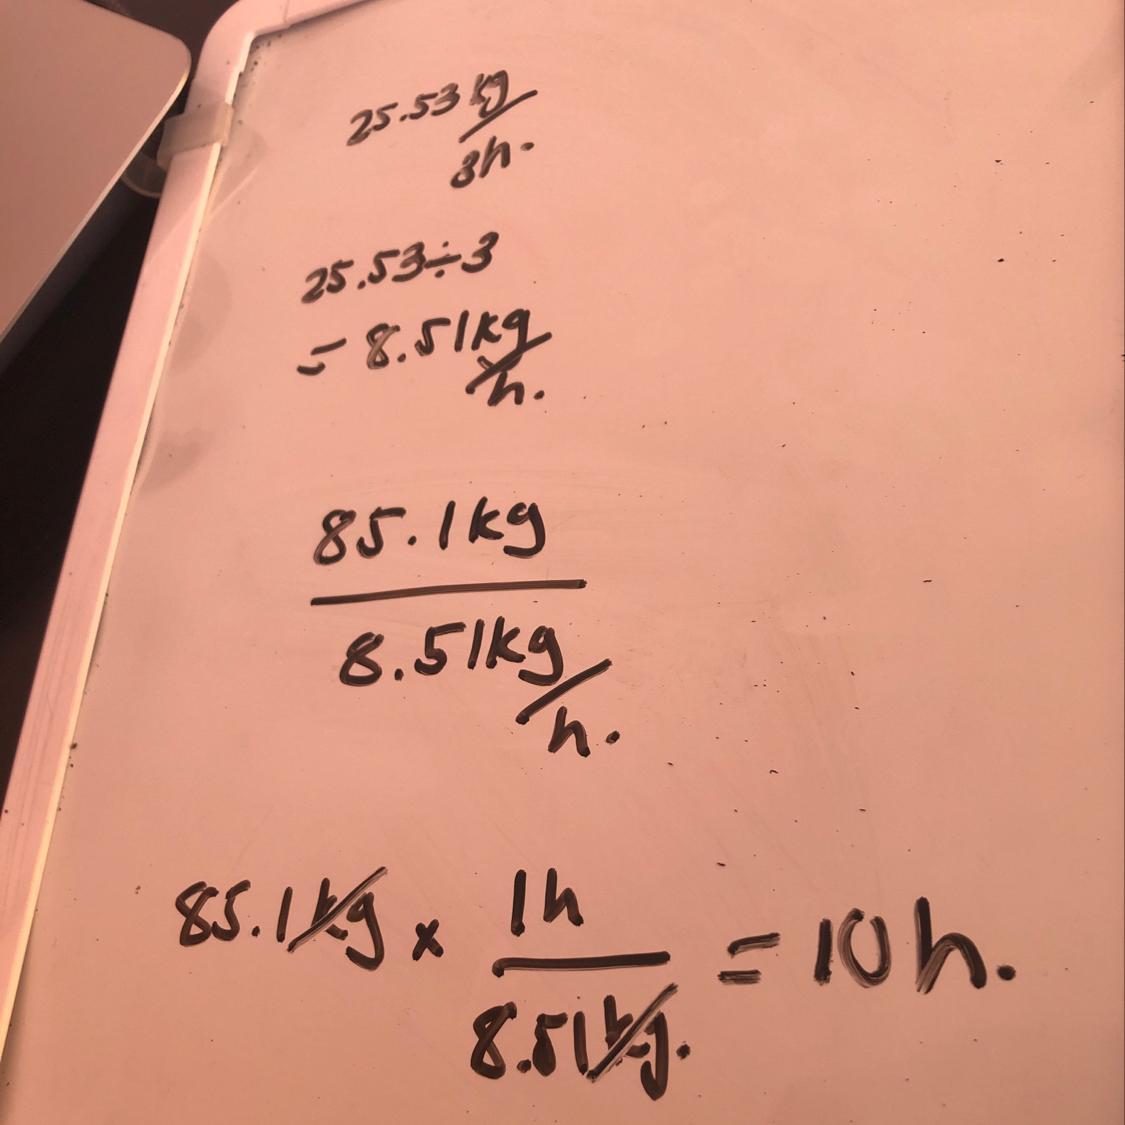 25.53 kg/
3h.
25.53÷3
= 8.51kg/
h.
85.1kg
8.51kg/
h.
85.1kg x 1h = 10h.
8.51kg.